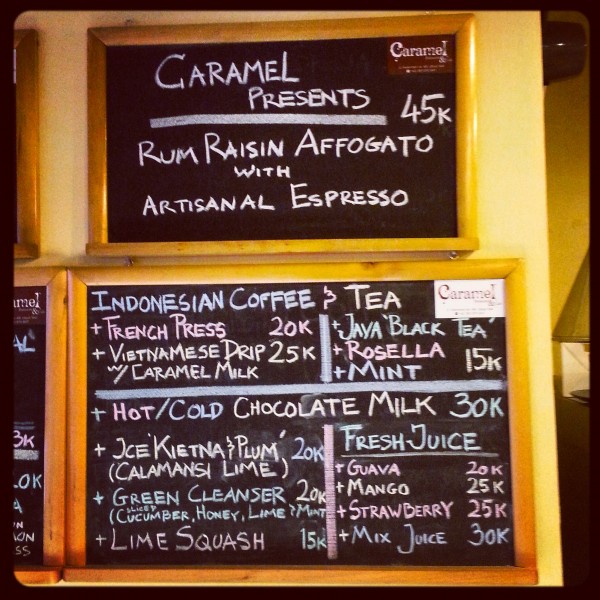 CARAMEL
PRESENTS
45K
RUM RAISIN AFFOGATO
WITH
ARTISANAL ESPRESSO
Caramel
INDONESIAN COFFEE & TEA
Caramel
+ FRENCH PRESS 20K
+ VIETNAMESE DRIP 25K
W/ CARAMEL MILK
+ JAVA 'BLACK TEA'
+ ROSELLA
+ MINT
15K
+ HOT/COLD CHOCOLATE MILK 30K
+ ICE 'KIETNA & PLUM' 20K
(CALAMANSI LIME)
+ GREEN CLEANSER 20K
SLICED
(CUCUMBER, HONEY, LIME & MINT
+ LIME SQUASH 15K
FRESH JUICE
+ GUAVA 20K
+ MANGO 25K
+ STRAWBERRY 25K
+ MIX JUICE 30K